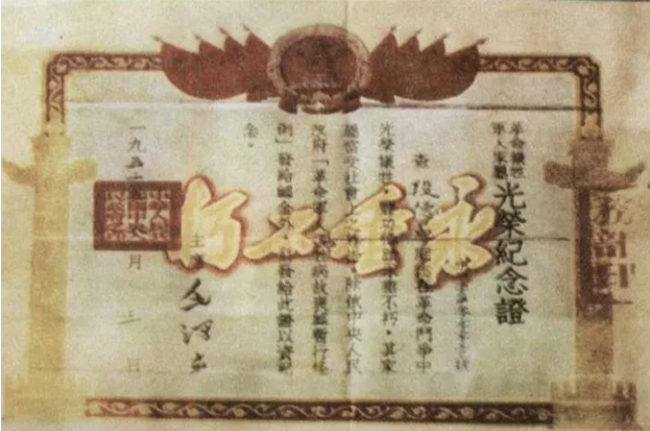 革命犧牲
軍人家屬
光榮紀念證
查段德昌同志在革命鬥爭中
光榮犧牲 永垂不朽，其家
屬當受社會上之 除依中央人民
政府「革命軍人 病故褒卹暫行條
例」發給卹金外 發給此證以資紀
念。
主席
毛澤東
一九五 年 月 三日
永垂不朽